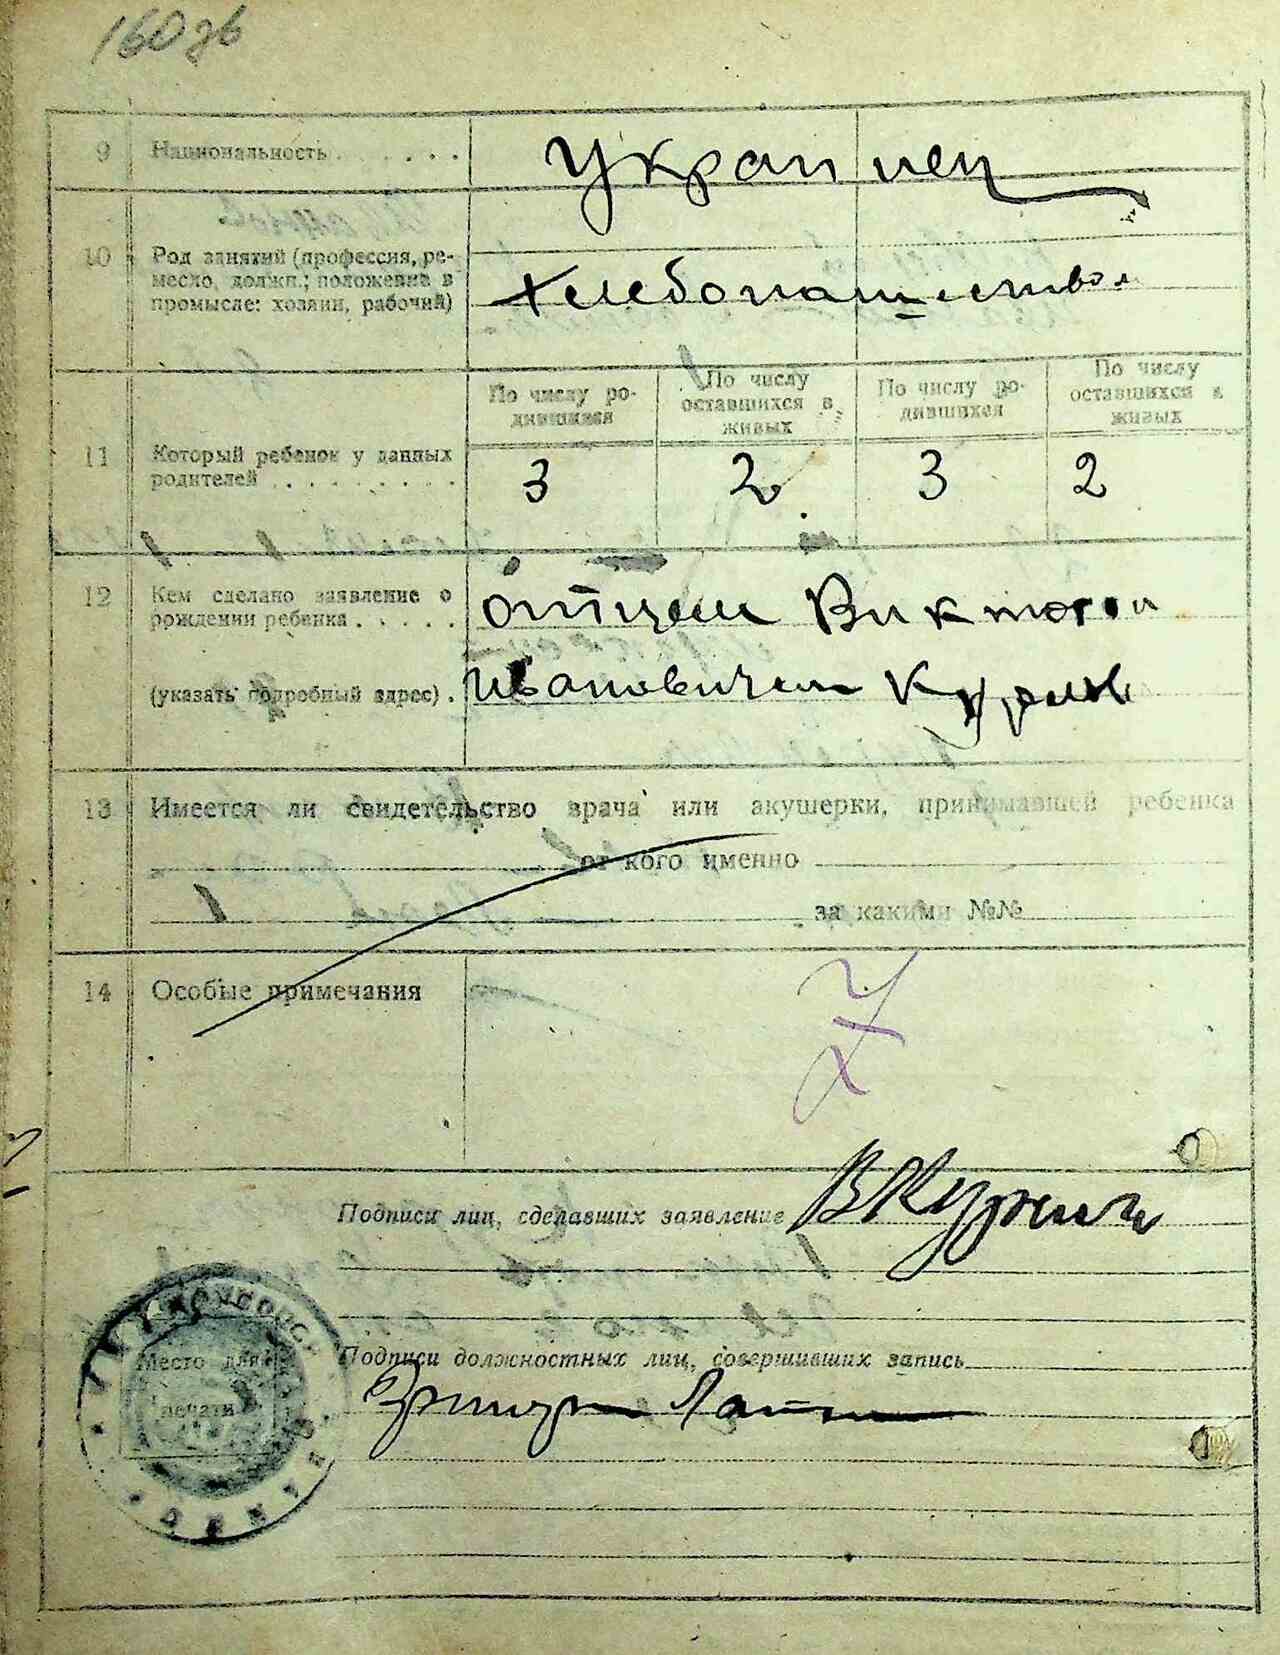 160 об
9 Национальность . . . . . . украинец
10 Род занятий (профессия, ре-
месло, должн.; положение в
промысле: хозяин, рабочий)
хлебопашество
По числу ро-
дившихся
По числу
оставшихся в
живых
По числу ро-
дившихся
По числу
оставшихся в
живых
11 Который ребенок у данных
родителей . . . . . . . . 3 2 3 2
12 Кем сделано заявление о
рождении ребенка . . . . . отцем Виктором
(указать подробный адрес) . Ивановичем
13 Имеется ли свидетельство врача или акушерки, принимавшей ребенка
от кого именно
за какими №№
14 Особые примечания
Подписи лиц, сделавших заявление
Подписи должностных лиц, совершивших запись
Место для
печати